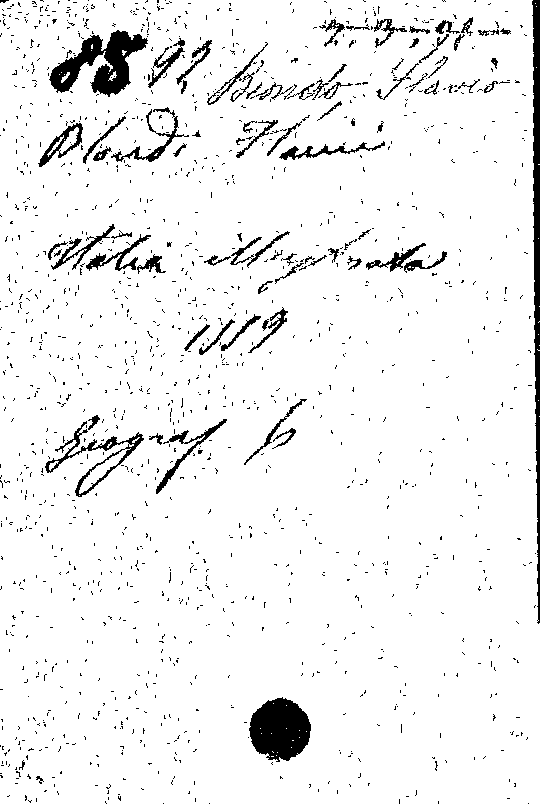 2. 3. 98
8592 Biondo Flavio
Blondi Flavii
Italia illustrata
1559
Geograf. 6